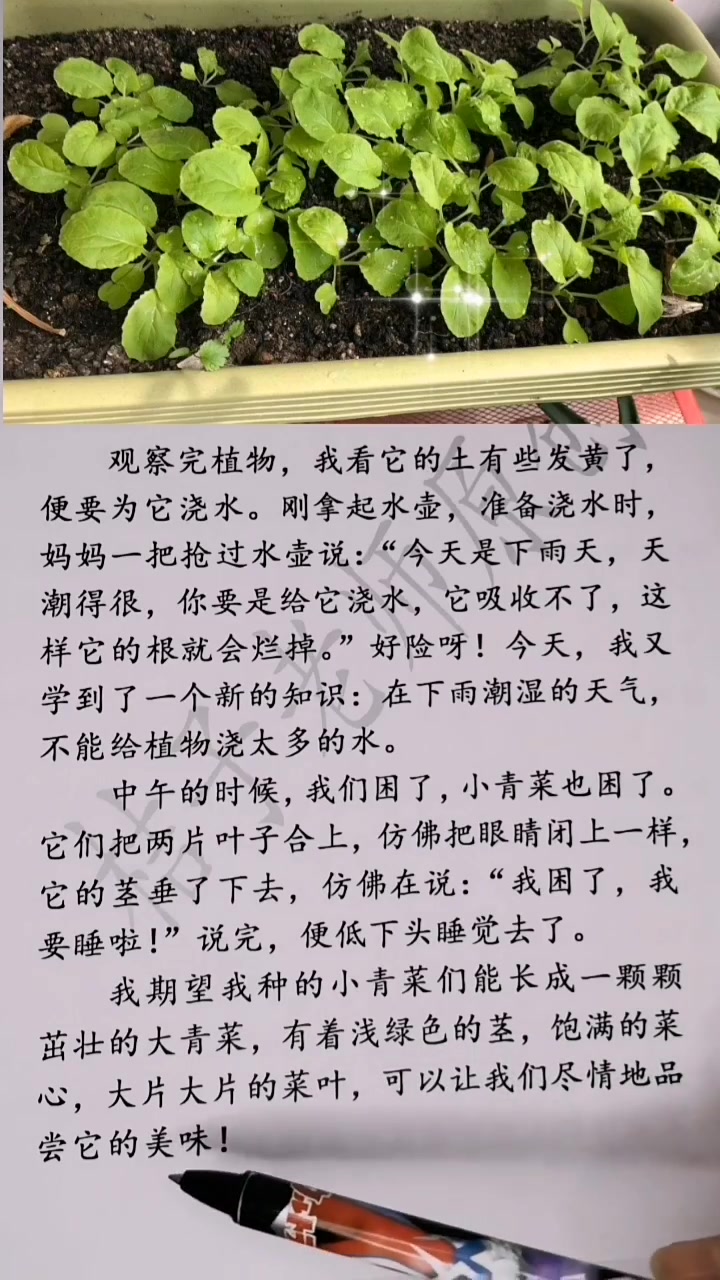 观察完植物，我看它的土有些发黄了，
便要为它浇水。刚拿起水壶，准备浇水时，
妈妈一把抢过水壶说：“今天是下雨天，天
潮得很，你要是给它浇水，它吸收不了，这
样它的根就会烂掉。”好险呀！今天，我又
学到了一个新的知识：在下雨潮湿的天气，
不能给植物浇太多的水。
中午的时候，我们困了，小青菜也困了。
它们把两片叶子合上，仿佛把眼睛闭上一样，
它的茎垂了下去，仿佛在说：“我困了，我
要睡啦！”说完，便低下头睡觉去了。
我期望我种的小青菜们能长成一颗颗
茁壮的大青菜，有着浅绿色的茎，饱满的菜
心，大片大片的菜叶，可以让我们尽情地品
尝它的美味！
桔子老师原创